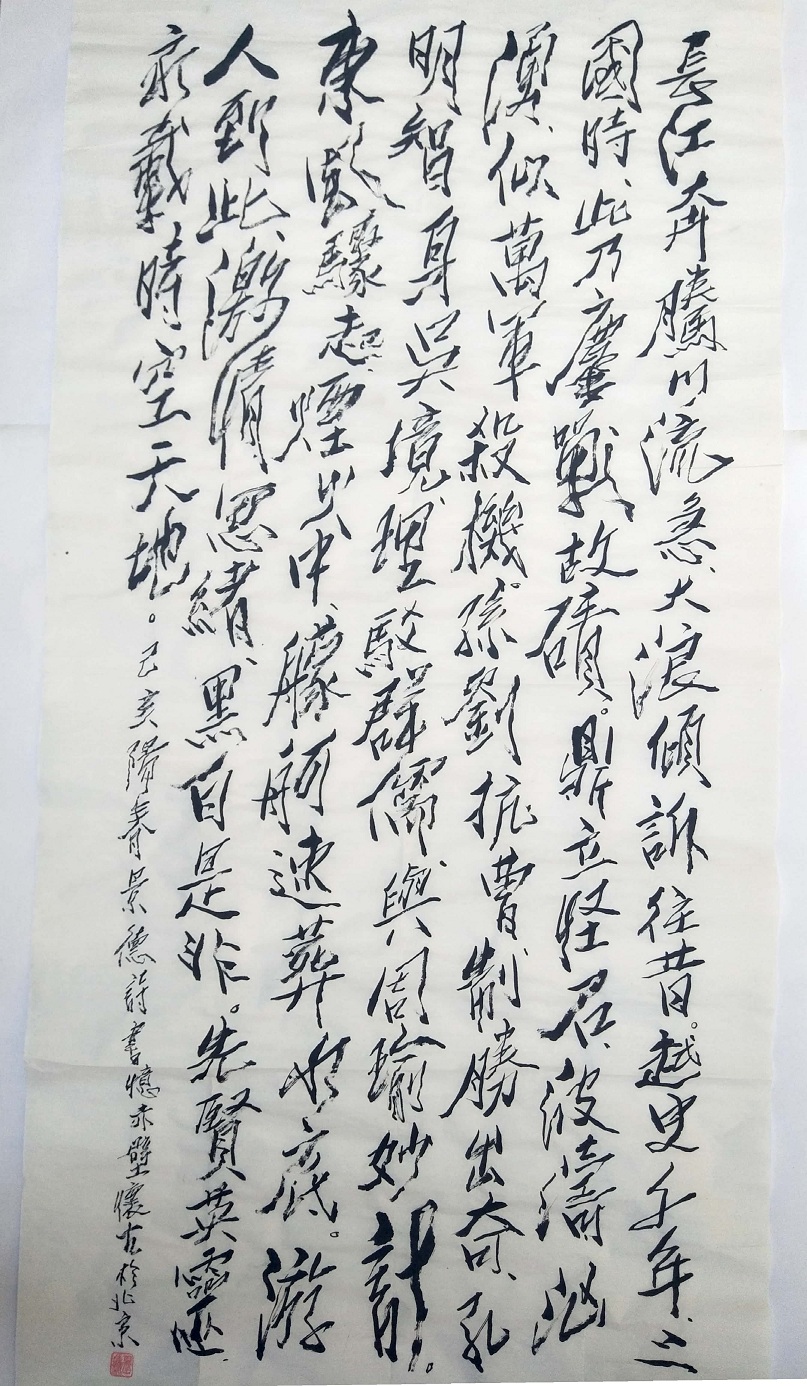 長江奔騰川流急、大浪傾訴往昔。越史千年、三
國時、此乃鏖戰故磧。鼎立怪石、波濤洶
湧、似萬軍殺機。孫劉抗曹制勝出奇、孔
明智身吳境、理駁群儒與周瑜妙計。
東風驟起、煙火中、艨舸速葬水底。游
人到此、激情思緒、黑白是非。先賢英靈
永載時空天地。己亥陽春景德詩書憶赤壁懷古於北京